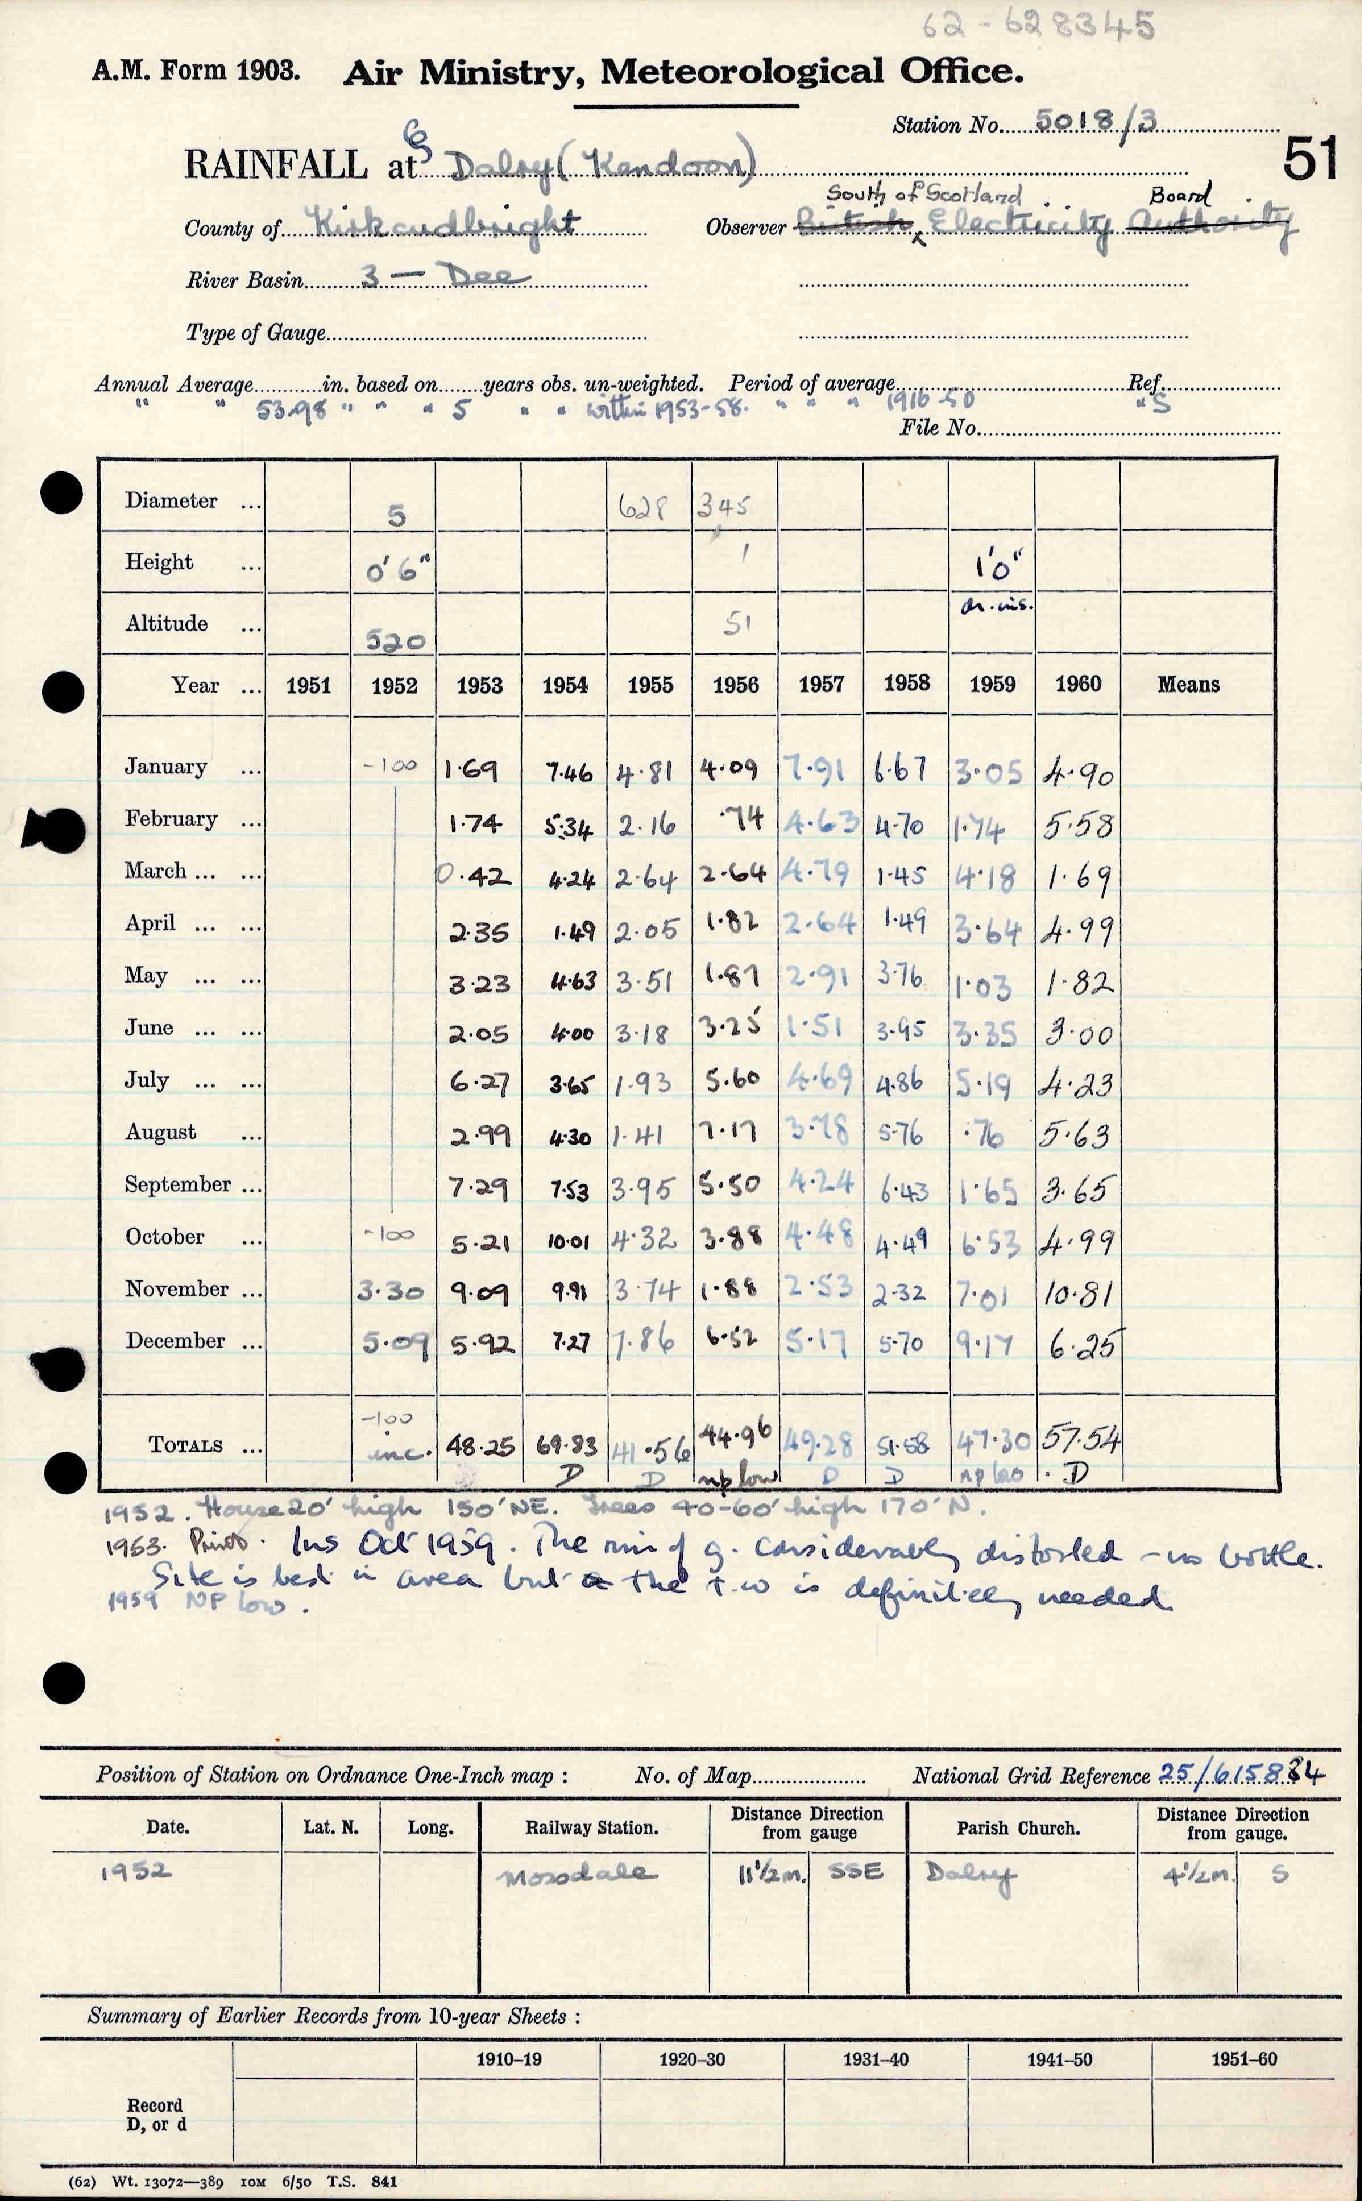 62-628345
A.M. Form 1903. Air Ministry, Meteorological Office.
Station No. 5018/3
51
RAINFALL at Dalry (Kendoon)
South of Scotland Board
County of Kirkcudbright Observer British Electricity Authority
River Basin 3 — Dee
Type of Gauge
Annual Average in. based on years obs. un-weighted. Period of average Ref.
" " 53.98 " " " 5 " " within 1953-58. " " " 1916-50 "S
File No.
Diameter ... 5 628 345
Height ... 0'6" 1 1'0"
Altitude ... 520 51 dr. ins.
Year ... 1951 1952 1953 1954 1955 1956 1957 1958 1959 1960 Means
January ... -100 1.69 7.46 4.81 4.09 7.91 6.67 3.05 4.90
February ... 1.74 5.34 2.16 .74 4.63 4.70 1.74 5.58
March ... ... 0.42 4.24 2.64 2.64 4.79 1.45 4.18 1.69
April ... ... 2.35 1.49 2.05 1.82 2.64 1.49 3.64 4.99
May ... ... 3.23 4.63 3.51 1.87 2.91 3.76 1.03 1.82
June ... ... 2.05 4.00 3.18 3.25 1.51 3.95 3.35 3.00
July ... ... 6.27 3.65 1.93 5.60 4.69 4.86 5.19 4.23
August ... 2.99 4.30 1.41 7.17 3.78 5.76 .76 5.63
September ... 7.29 7.53 3.95 5.50 4.24 6.43 1.65 3.65
October ... -100 5.21 10.01 4.32 3.88 4.48 4.49 6.53 4.99
November ... 3.30 9.09 9.91 3.74 1.88 2.53 2.32 7.01 10.81
December ... 5.09 5.92 7.27 7.86 6.52 5.17 5.70 9.17 6.25
-100
TOTALS ... inc. 48.25 69.83 41.56 44.96 49.28 51.58 47.30 57.54
D D np low D D np low D
1952. House 20' high 150' NE. Trees 40-60' high 170' N.
1953. Printo. Ins Oct 1959. The rim of g. considerably distorted - no bottle.
Site is best in area but the t.w is definitely needed
1959 NP low.
Position of Station on Ordnance One-Inch map : No. of Map National Grid Reference 25/615834
Date. Lat. N. Long. Railway Station. Distance Direction from gauge Parish Church. Distance Direction from gauge.
1952 Mossdale 11½m. SSE Dalry 4½m. S
Summary of Earlier Records from 10-year Sheets :
1910–19 1920–30 1931–40 1941–50 1951–60
Record
D, or d
(62) Wt. 13072—389 10M 6/50 T.S. 841